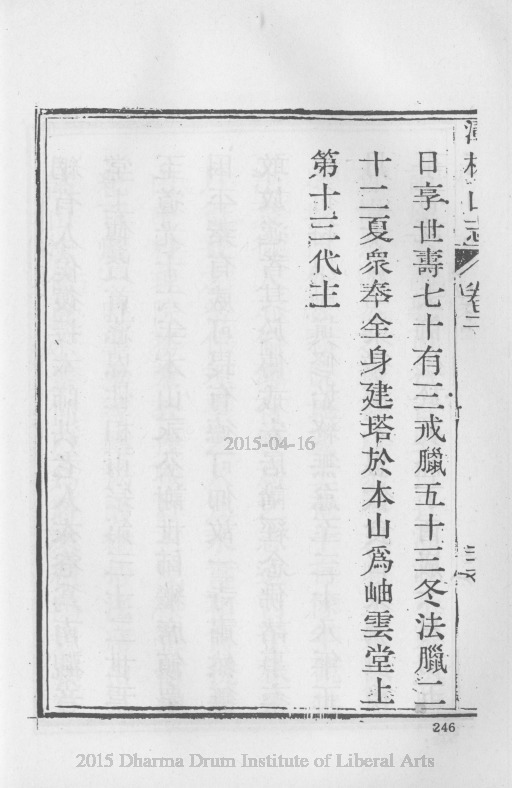 林山志
卷二
日享世壽七十有三戒臘五十三冬法臘二
十二夏衆奉全身建塔於本山爲岫雲堂上
第十三代主
2015-04-16
246
2015 Dharma Drum Institute of Liberal Arts